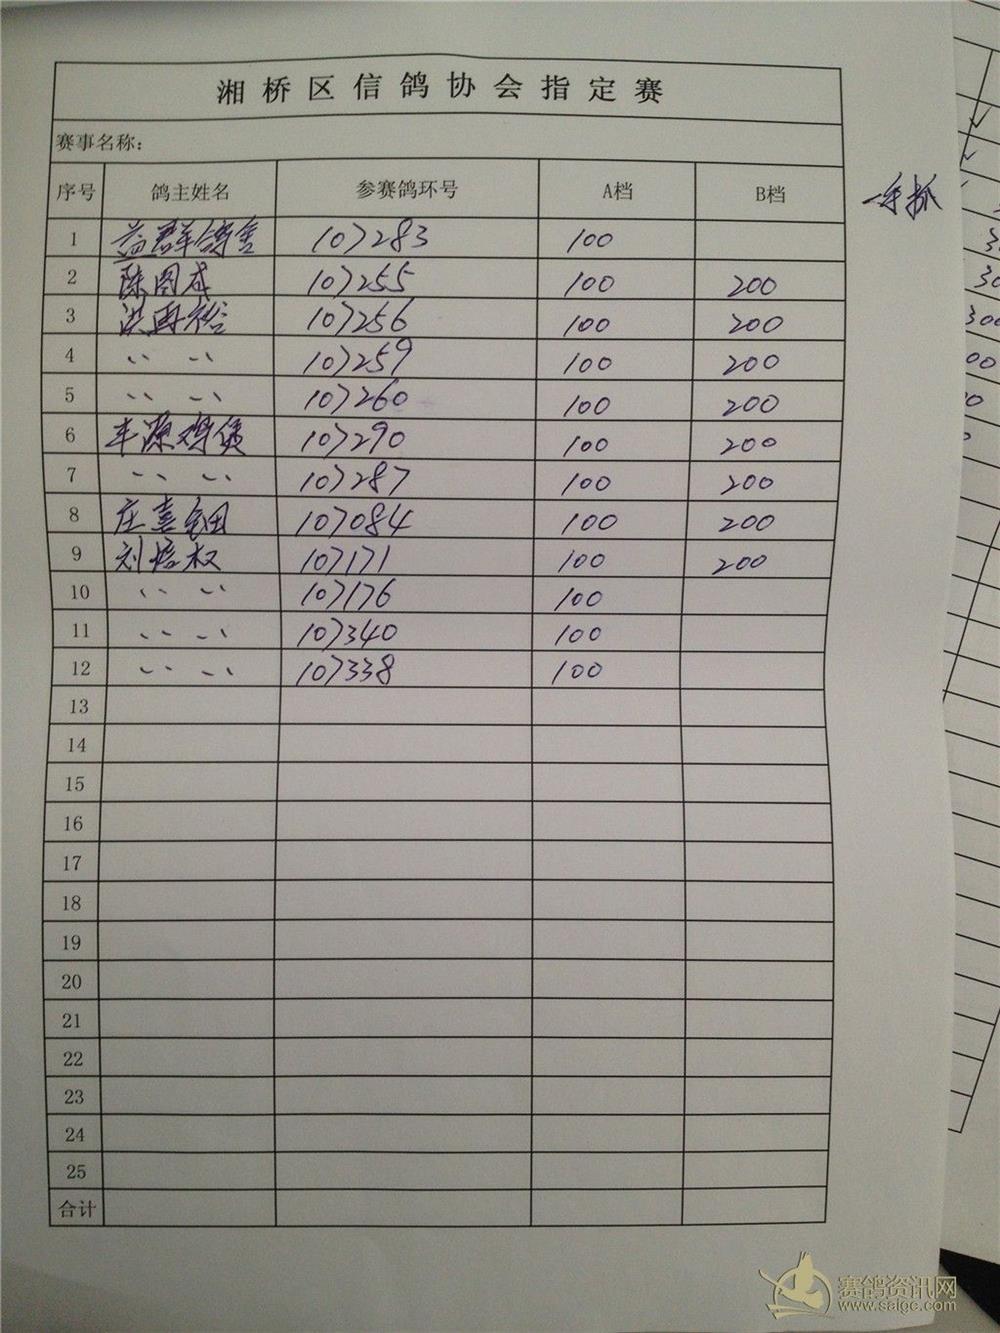 湘桥区信鸽协会指定赛
赛事名称：
序号 鸽主姓名 参赛鸽环号 A档 B档
一手抓
1 益群鸽舍 107283 100
2 陈图成 107255 100 200
3 洪再裕 107256 100 200
4 〃 〃 107259 100 200
5 〃 〃 107260 100 200
6 丰源 107290 100 200
7 〃 〃 107287 100 200
8 庄喜 107084 100 200
9 刘培权 107171 100 200
10 〃 〃 107176 100
11 〃 〃 107340 100
12 〃 〃 107338 100
13
14
15
16
17
18
19
20
21
22
23
24
25
合计
赛鸽资讯网
www.saige.com